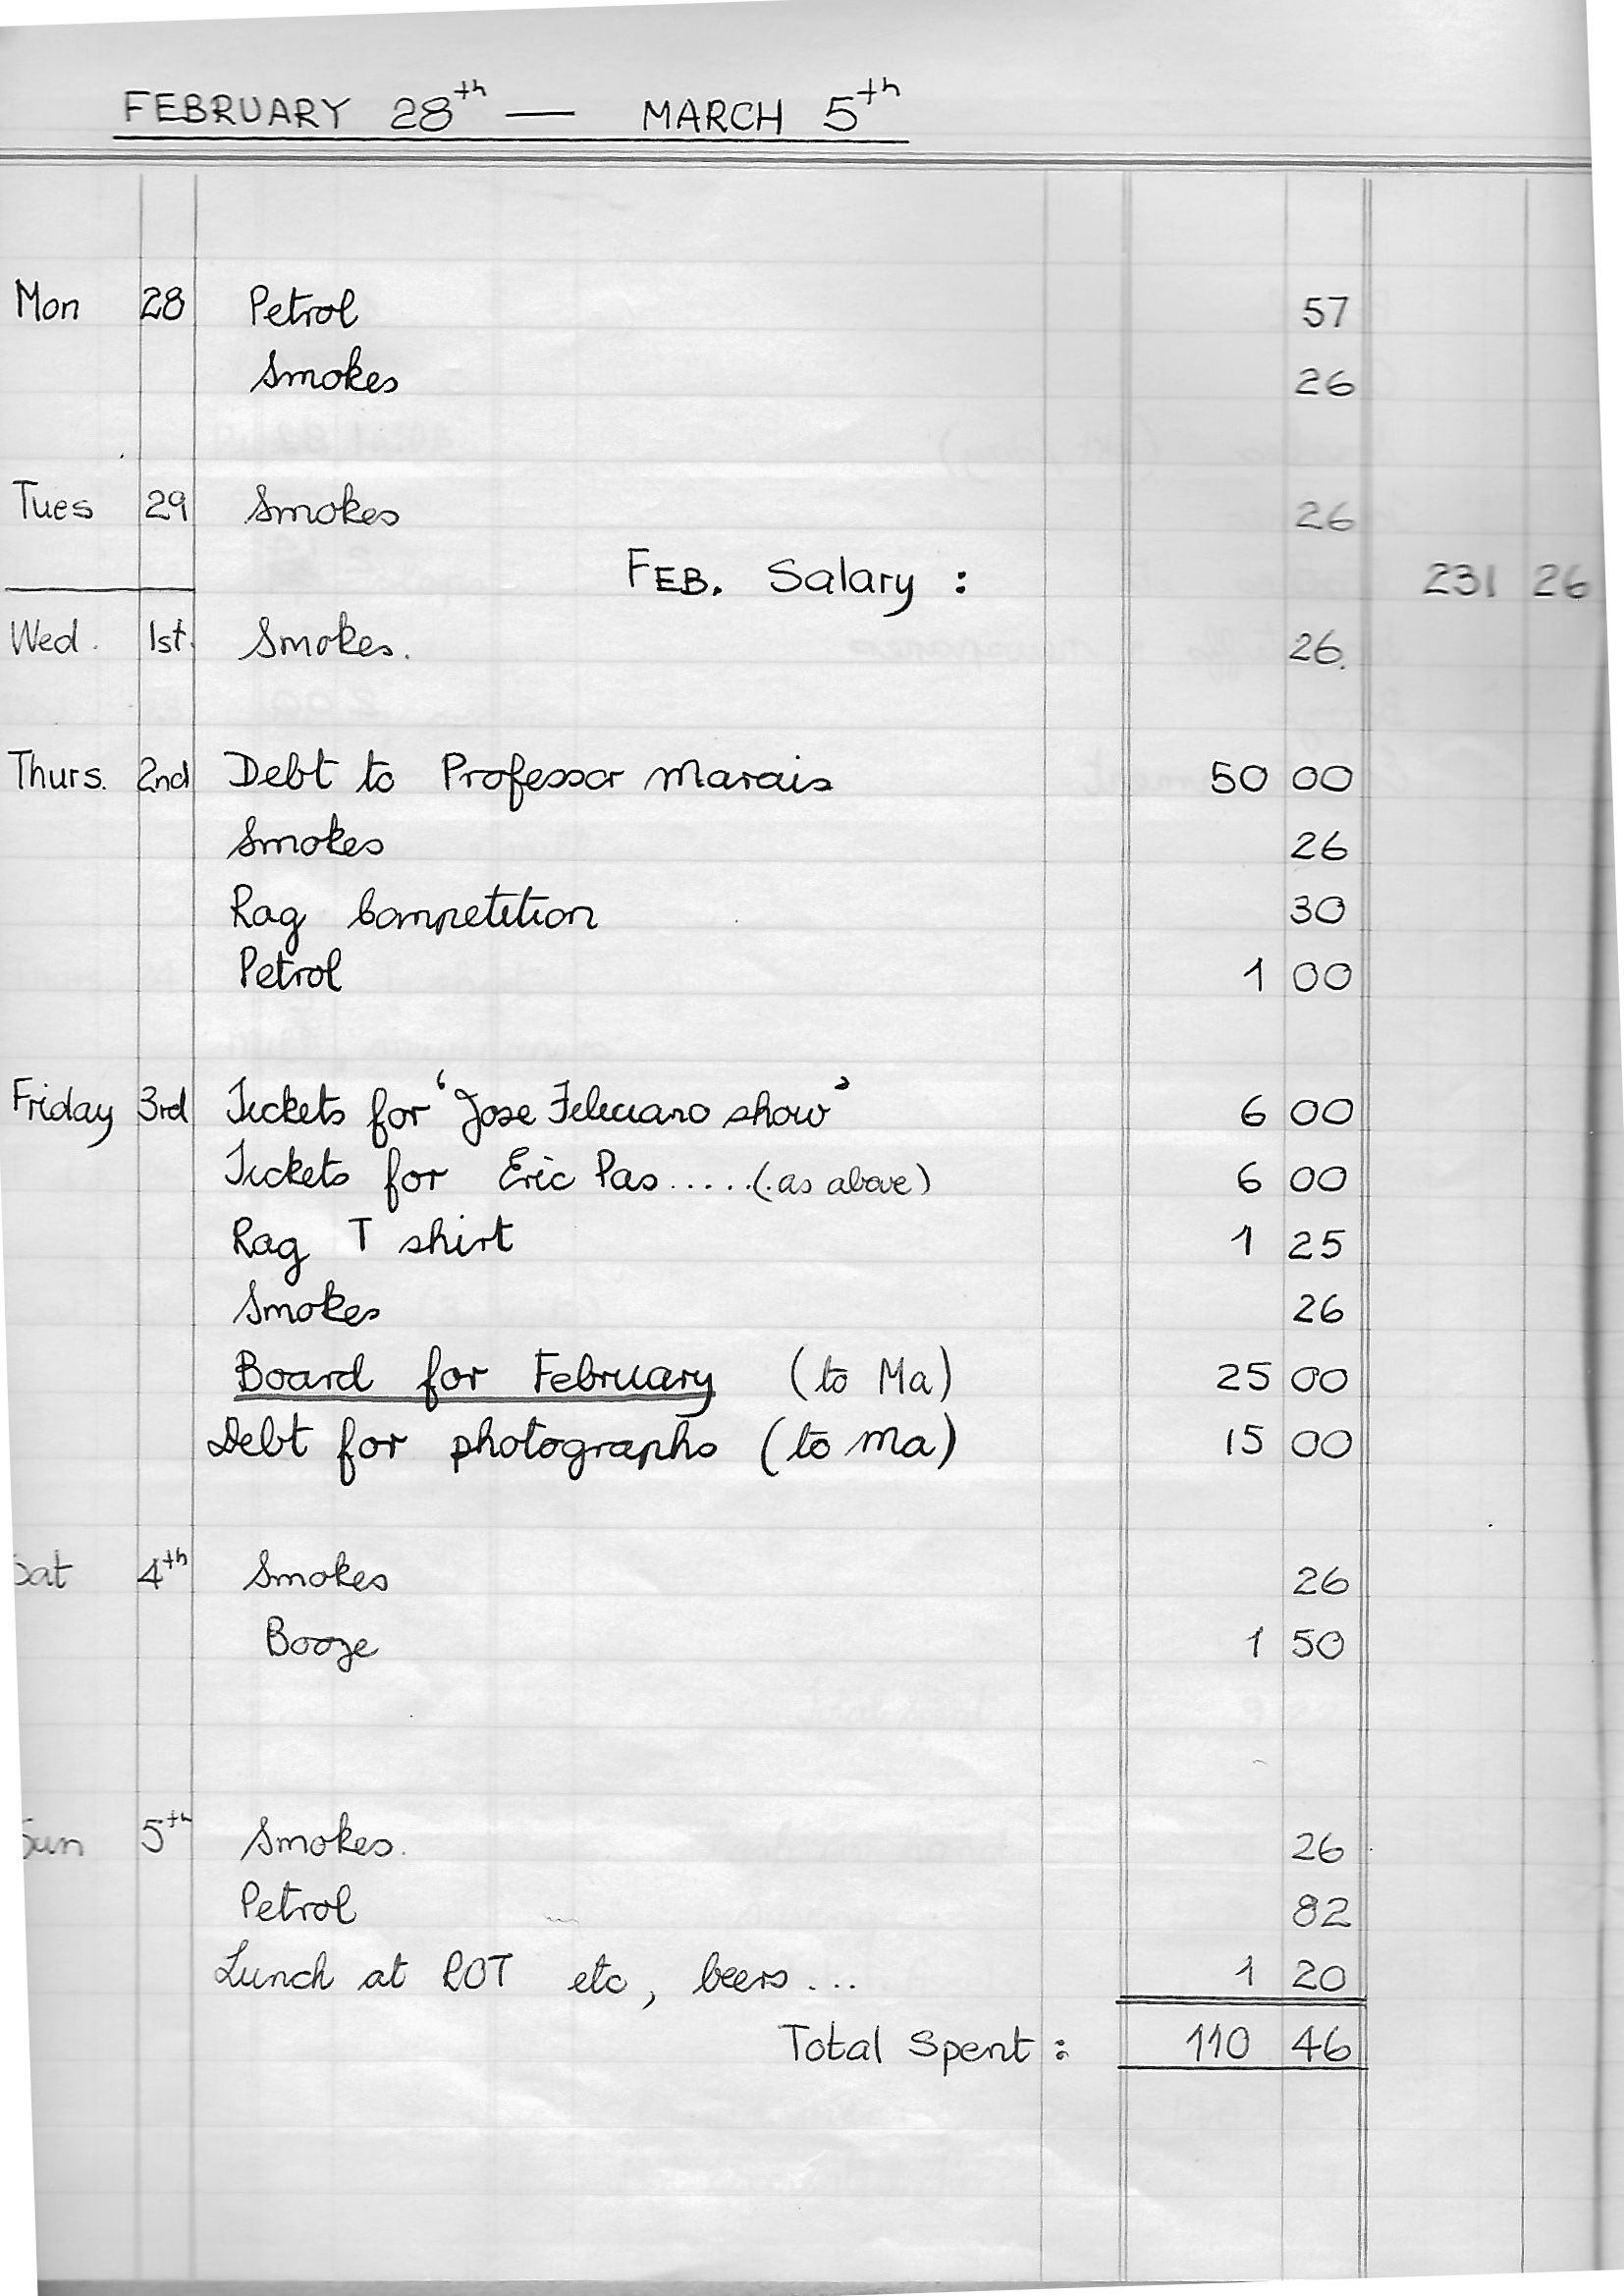 FEBRUARY 28th — MARCH 5th
Mon 28 Petrol 57
Smokes 26
Tues 29 Smokes 26
FEB. Salary : 231 26
Wed. 1st. Smokes. 26.
Thurs. 2nd Debt to Professor Marais 50 00
Smokes 26
Rag Competition 30
Petrol 1 00
Friday 3rd Tickets for 'Jose Feleciano show' 6 00
Tickets for Eric Pas.....(as above) 6 00
Rag T shirt 1 25
Smokes 26
Board for February (to Ma) 25 00
Debt for photographs (to Ma) 15 00
Sat 4th Smokes 26
Booze 1 50
Sun 5th Smokes. 26
Petrol 82
Lunch at ROT etc, beers... 1 20
Total Spent : 110 46